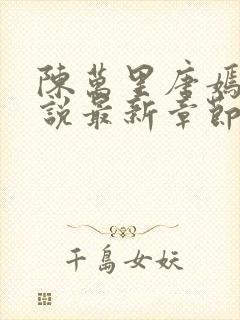 陳萬里唐嫣
說最新章節
千島女妖